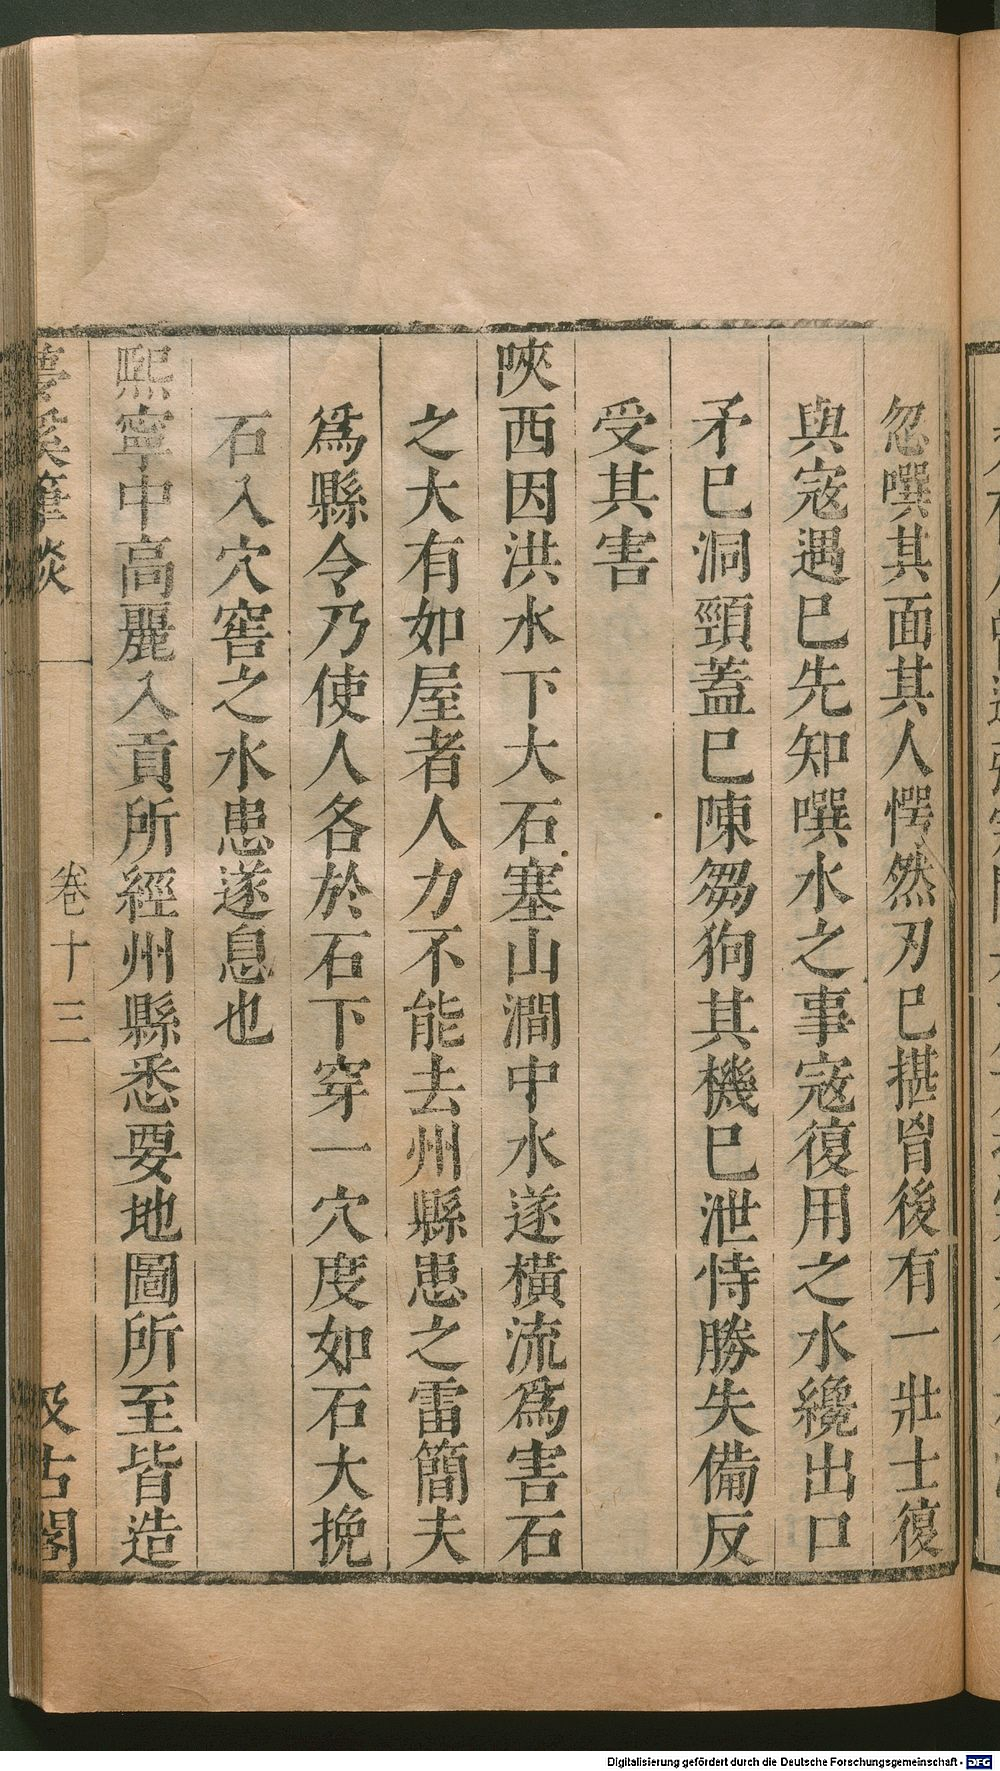 忽噀其面其人愕然刃巳揕胷後有一壯士復
與寇遇巳先知噀水之事寇復用之水纔出口
矛巳洞頸蓋巳陳芻狗其機巳泄恃勝失備反
受其害
陝西因洪水下大石塞山澗中水遂橫流爲害石
之大有如屋者人力不能去州縣患之雷簡夫
爲縣令乃使人各於石下穿一穴度如石大挽
石入穴窖之水患遂息也
熙寧中高麗入貢所經州縣悉要地圖所至皆造
夢溪筆談 卷十三 汲古閣
Digitalisierung gefördert durch die Deutsche Forschungsgemeinschaft - DFG